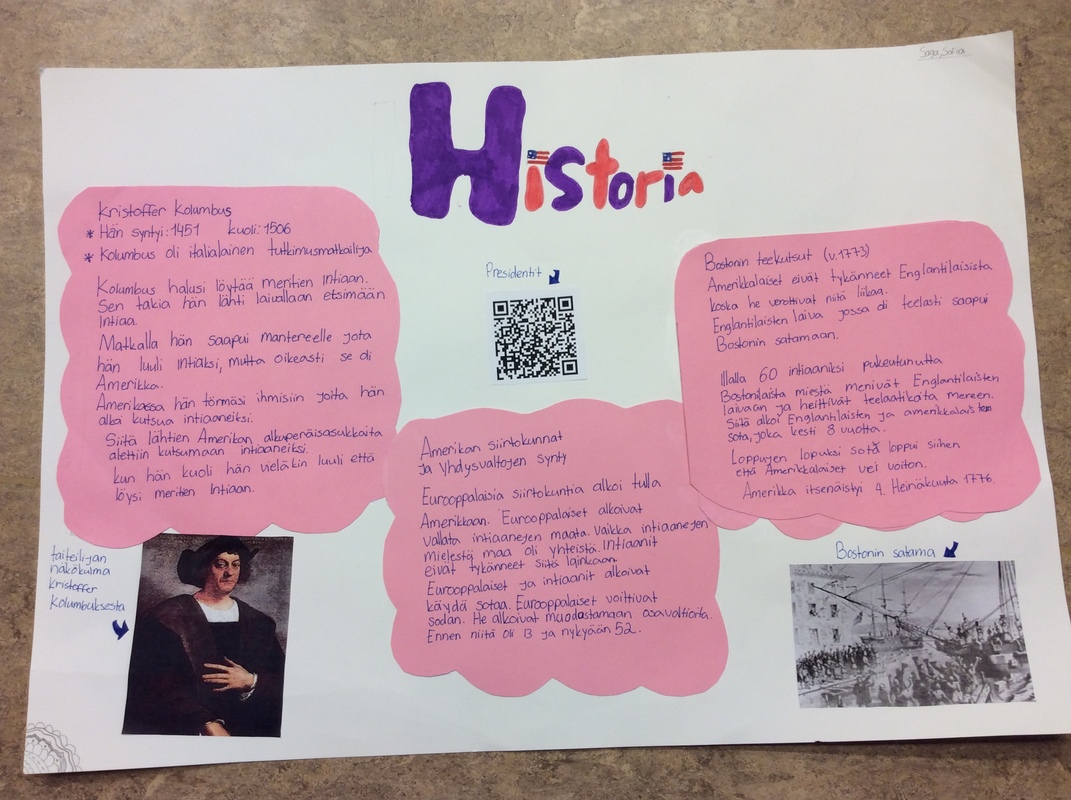 Saga, Sofia
Historia
Kristoffer Kolumbus
* Hän syntyi: 1451 kuoli: 1506
* Kolumbus oli italialainen tutkimusmatkailija
Kolumbus halusi löytää meritien Intiaan.
Sen takia hän lähti laivallaan etsimään
Intiaa.
Matkalla hän saapui mantereelle jota
hän luuli intiaksi, mutta oikeasti se oli
Amerikka.
Amerikassa hän törmäsi ihmisiin joita hän
alkoi kutsua intiaaneiksi.
Siitä lähtien Amerikan alkuperäisasukkaita
alettiin kutsumaan intiaaneiksi.
kun hän kuoli hän vieläkin luuli että
löysi meritien Intiaan.
taiteilijan
näkökulma
kristoffer
Kolumbuksesta
Presidentit
Amerikan siirtokunnat
ja Yhdysvaltojen synty
Eurooppalaisia siirtokuntia alkoi tulla
Amerikkaan. Eurooppalaiset alkoivat
vallata intiaanejen maata. Vaikka intiaanejen
mielestä maa oli yhteistä. Intiaanit
eivät tykänneet siitä lainkaan.
Eurooppalaiset ja intiaanit alkoivat
käydä sotaa. Eurooppalaiset voittivat
sodan. He alkoivat muodostamaan osavaltioita.
Ennen niitä oli 13 ja nykyään 52.
Bostonin teekutsut (v.1773)
Amerikkalaiset eivät tykänneet Englantilaisista
koska he verottivat niitä liikaa.
Englantilaisten laiva jossa oli teelasti saapui
Bostonin satamaan.
Illalla 60 intiaaniksi pukeutunutta
Bostonilaista miestä menivät Englantilaisten
laivaan ja heittivät teelaatikoita mereen.
Siitä alkoi Englantilaisten ja amerikkalaisten
sota, joka kesti 8 vuotta.
Loppujen lopuksi sota loppui siihen
että Amerikkalaiset vei voiton.
Amerikka itsenäistyi 4. Heinäkuuta 1776.
Bostonin satama